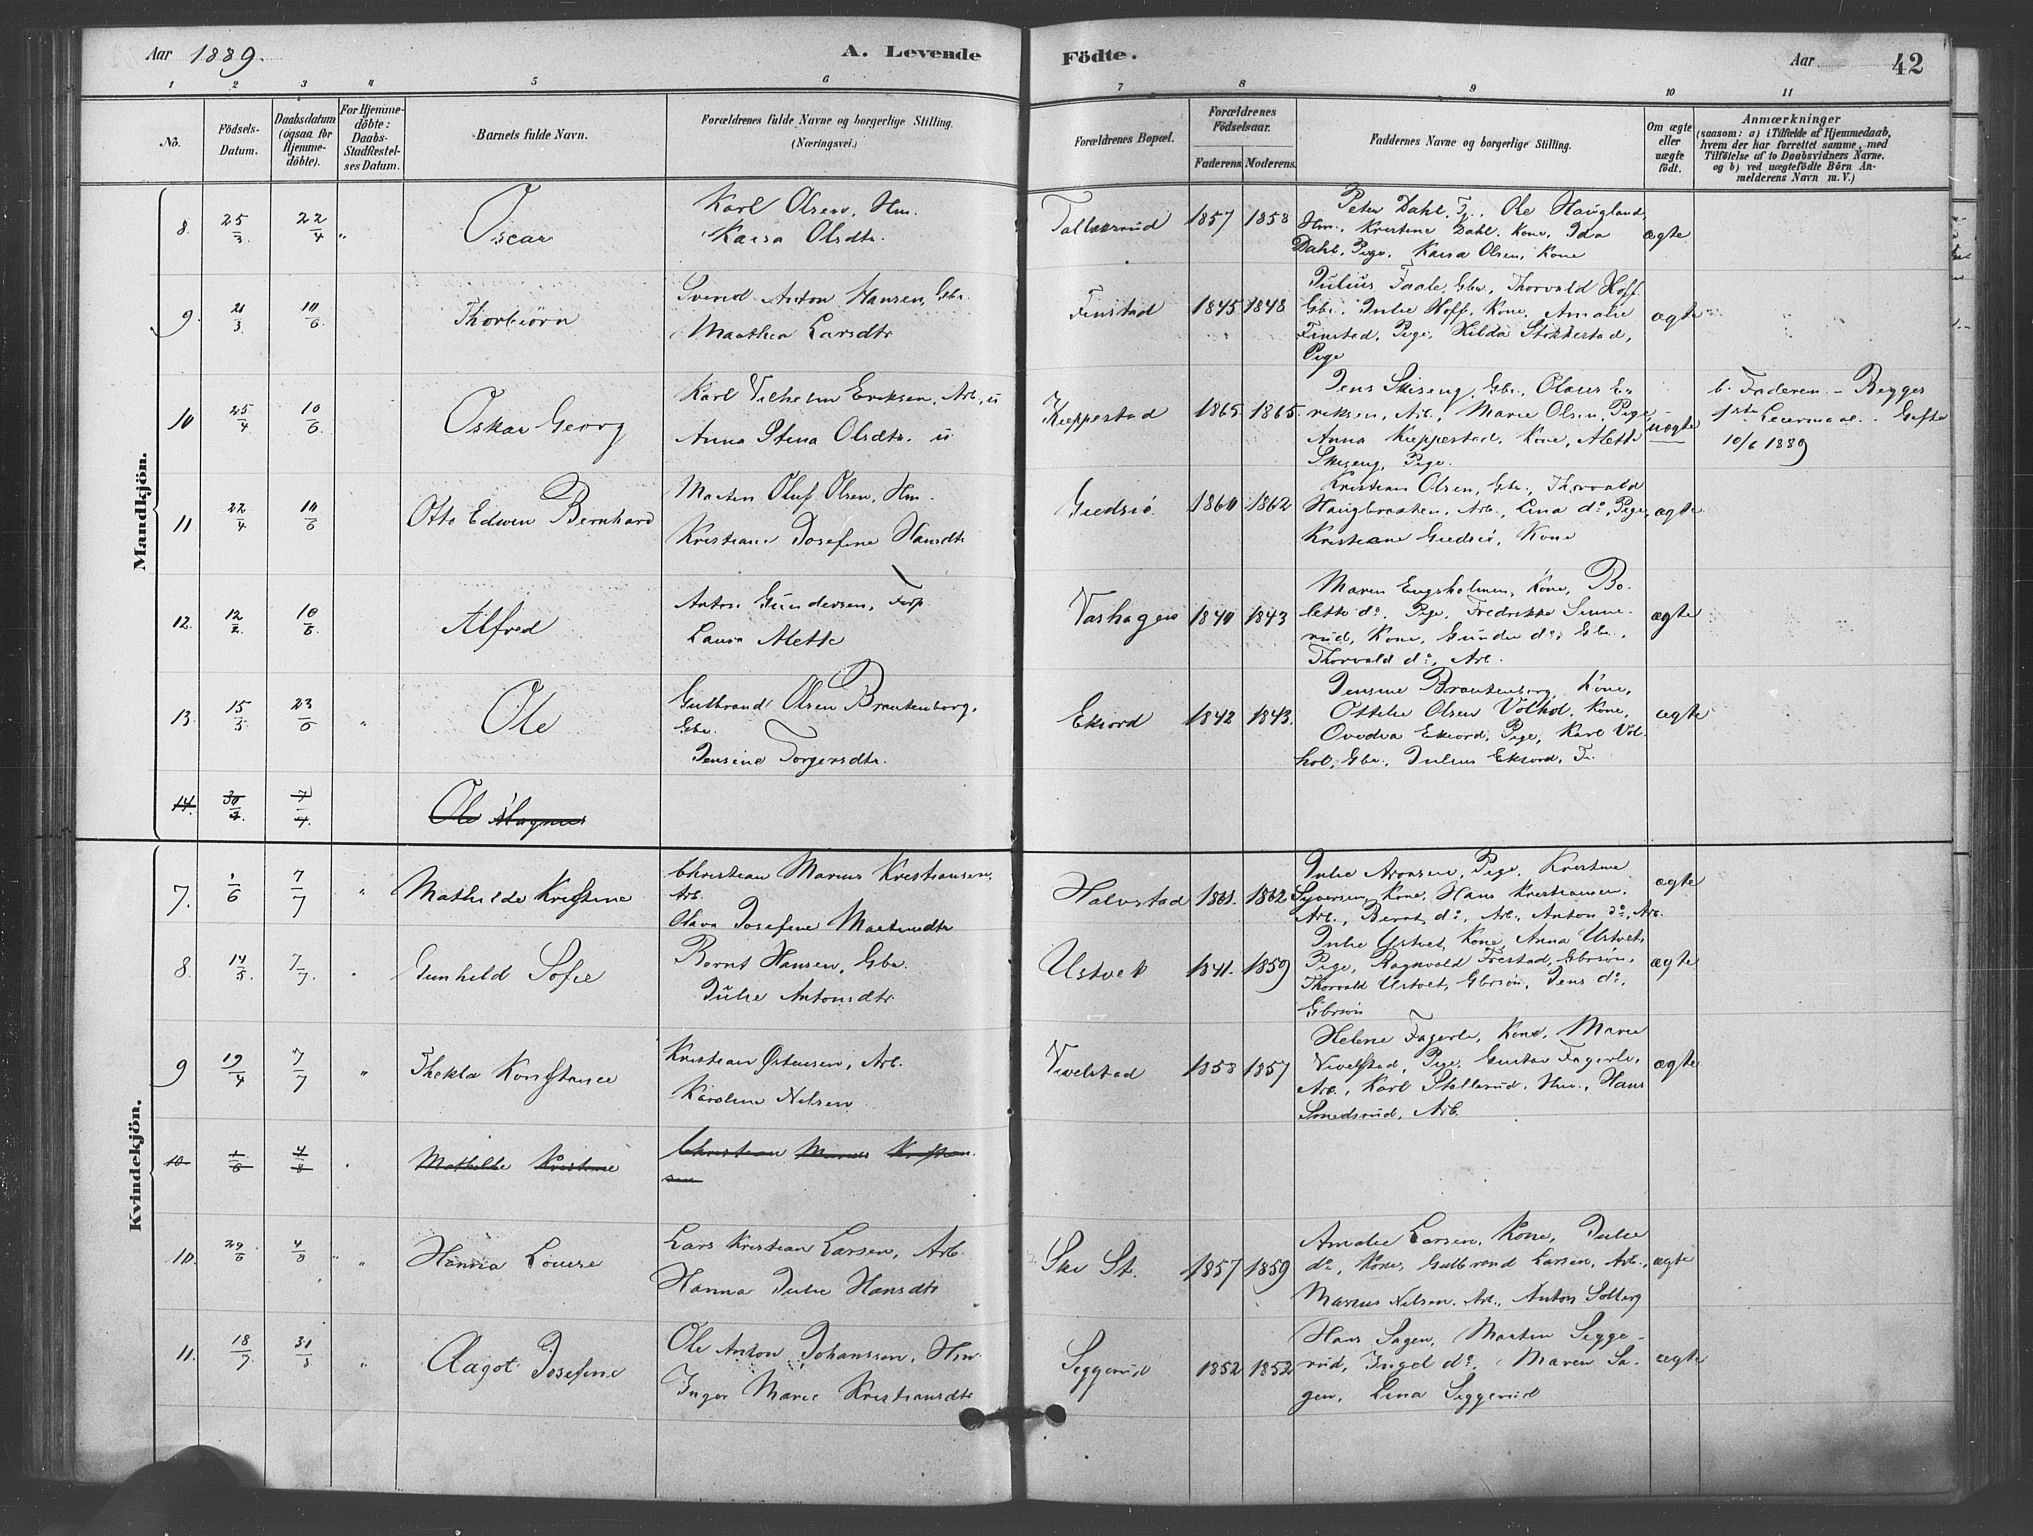 Aar 1889. A. Levende Födte. Aar 42
1 2 3 4 5 6 7 8 9 10 11
No. Födsels-Datum. Daabsdatum (ogsaa for Hjemmedöbte). For Hjemmedöbte: Daabs-Stadfæstelses Datum. Barnets fulde Navn. Forældrenes fulde Navne og borgerlige Stilling. (Næringsvei.) Forældrenes Bopæl. Forældrenes Födselsaar. Faderens. Moderens. Faddernes Navne og borgerlige Stilling. Om ægte eller uægte födt. Anmærkninger (saasom: a) i Tilfælde af Hjemmedaab, hvem der har forrettet samme, med Tilföielse af to Daabsvidners Navne, og b) ved uægtefödte Börn Anmelderens Navn m. V.)
Mandkjön.
8. 25/3. 22/4 " Oscar Karl Olsen, Hm. 1857 1858 Peter Dahl, Ole Haugland,
Kaisa Olsdtr. Hm., Kristine Dahl, Kone, Ida ægte
Dahl, Pige, Kaisa Olsen, Kone
9. 21/3 10/6 Thorbiörn Svend Anton Hansen, Gbr. Finstad 1845 1848 Julius Faale, Gbr., Thorvald Hoff
Maathea Larsdtr Gbr., Julie Hoff, Kone, Amalie ægte
Finstad, Pige, Hilda Stokkestad,
Pige
10 25/4 10/6 Oskar Georg Karl Vilhelm Eriksen, Arb., u Kieppestad 1865. 1865. Jens Skiseng, Gbr., Olaus E- b. Faderen. - Begges
Anna Stina Olsdtr. u riksen, Arb., Marie Olsen, Pige uægte 1ste Leiermaal. - Gifte
Anna Kieppestad, Kone, Alette 10/6 1889
Skiseng, Pige.
11 22/4 10/6 Otto Edwin Bernhard Martin Oluf Olsen, Hm. Giedsiö 1860 1862 Kristian Olsen, Gbr., Thorvald
Kristiane Josefine Hansdtr Haugbraaten, Arb., Lina do, Pige, ægte
Kristiane Giedsiö, Kone
12. 12/2 10/6 Alfred Anton Gundersen, Vashagen 1840 1843 Maren Engsholmen, Kone, Bo-
Laura Alette lette do, Pige, Fredrikke Sinne- ægte
rud, Kone, Gunder do, Gbr.,
Thorvald do, Arb.
13. 15/3 23/6 " Ole Gulbrand Olsen Brautenborg, Eksord 1842 1843. Jensine Brautenborg, Kone,
Gbr. Ottilie Olsen Volhol, Kone, ægte
Jensine Torgersdtr. Ovedia Eksord, Pige, Karl Vol-
hol, Gbr., Julius Eksord,
14. 30/4 7/4. Ole Magnus
Kvindekjön.
7. 1/6 7/7 " Mathilde Kristine Christian Marius Kristiansen, Halvstad 1861. 1862 Julie Aronsen, Pige, Kristine ægte
Arb. Syversen, Kone, Hans Kristiansen,
Olava Josefine Martinsdtr Arb., Bernt do, Arb., Anton do, Arb.
8. 14/5. 7/7. " Gunhild Sofie Bernt Hansen, Gbr. Ustvet 1841. 1859 Julie Ustvet, Kone, Anna Ustvet,
Julie Antonsdtr Pige, Ragnvald Frestad, Gbrsön, ægte
Thorvald Ustvet, Gbrsön, Jens do,
Gbrsön
9 19/4 7/7 " Thekla Konstance Kristian Östensen, Arb. Vivelstad 1858 1857 Helene Fagerli, Kone, Marie
Karoline Nilsen Vivelstad, Pige, Gustav Fagerli, ægte
Arb., Karl Stallerud, Hm., Hans
Smedsrud, Arb.
10 1/6 4/8 Mathilde Kristine Christian Marius Kristian-
sen
10. 29/6 4/8 " Hanna Louise Lars Kristian Larsen, Arb. Ski St. 1857 1859 Amalie Larsen, Kone, Julie
Hanna Julie Hansdtr do, Kone, Gulbrand Larsen, Arb., ægte
Marius Nilsen, Arb., Anton Solberg
11. 18/7. " Aagot Josefine Ole Anton Johanssen, Hm. Seggerud 1852 1852 Hans Sagen, Martin Segge-
Inger Marie Kristiansdtr rud, Ingel do, Maren Sa- ægte
gen, Lina Seggerud